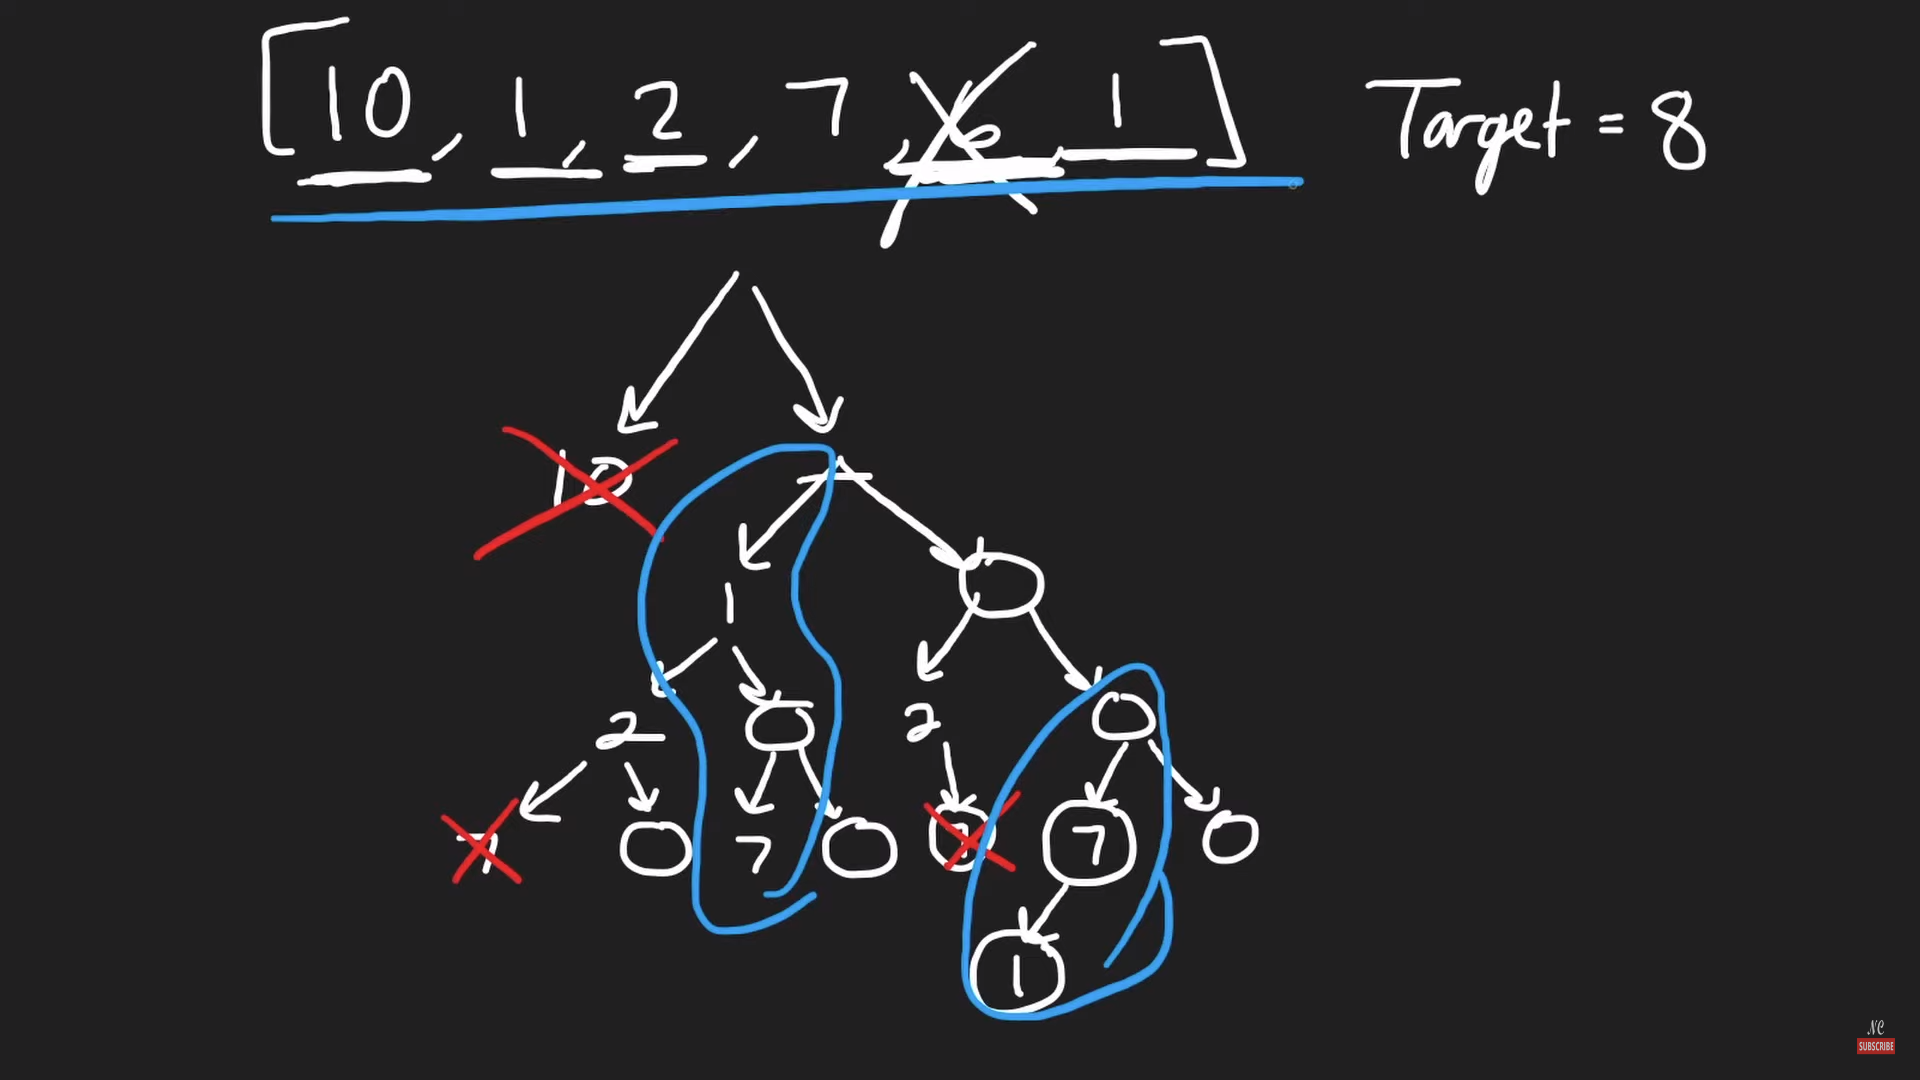 [10, 1, 2, 7, 6, 1] Target = 8
10
1
2 2
7 7 7 7
1
NC
SUBSCRIBE